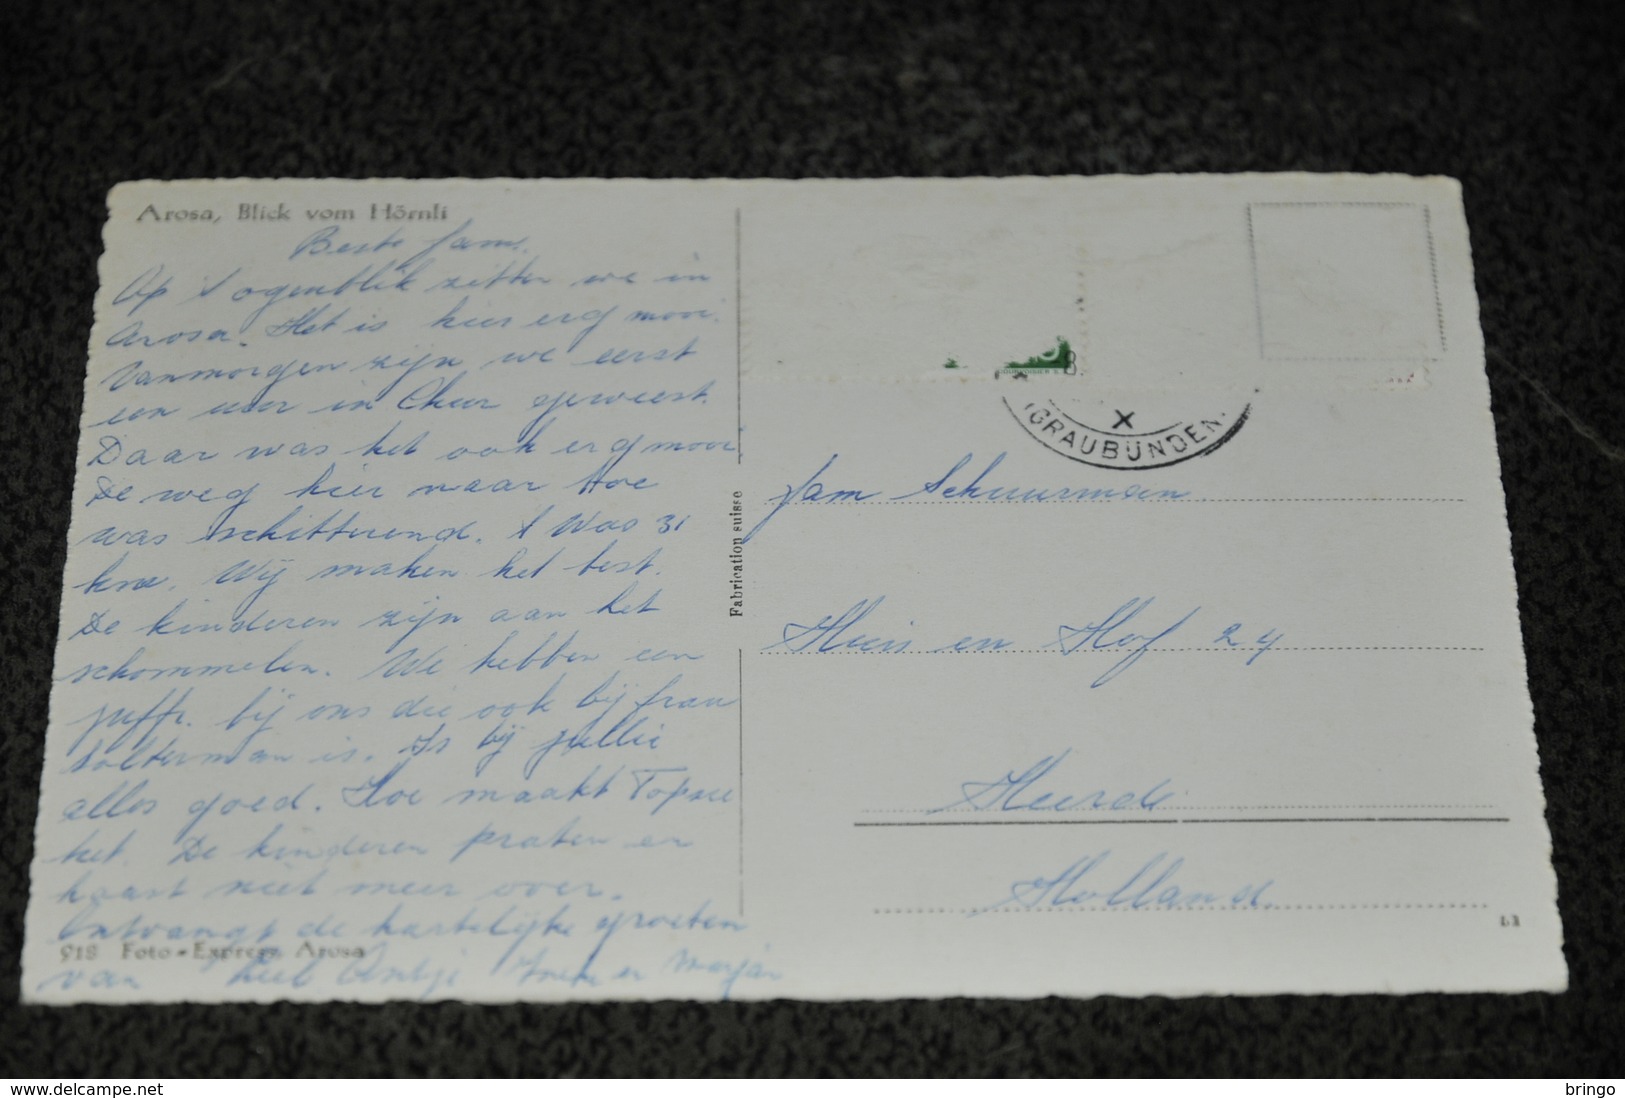 Arosa, Blick vom Hörnli
Beste fam.
Op 't ogenblik zitten we in
Arosa. Het is hier erg mooi.
Vanmorgen zijn we eerst
een uur in Chur geweest.
Daar was het ook erg mooi
De weg hier naar toe
was schitterend. 't Was 31
km. Wij maken het best.
De kinderen zijn aan het
schommelen. We hebben een
juffr. bij ons die ook bij frau
is. Is bij jullie
alles goed. Hoe maakt Topsie
het. De kinderen praten er
haast niet meer over.
Ontvangt de hartelijke groeten
918 Foto-Express Arosa
van Antje en Marjan
Fabrication suisse
(GRAUBÜNDEN)
Fam Schuurman
Huis en Hof 24
Heerde
Holland.
delcampe.net
bringo